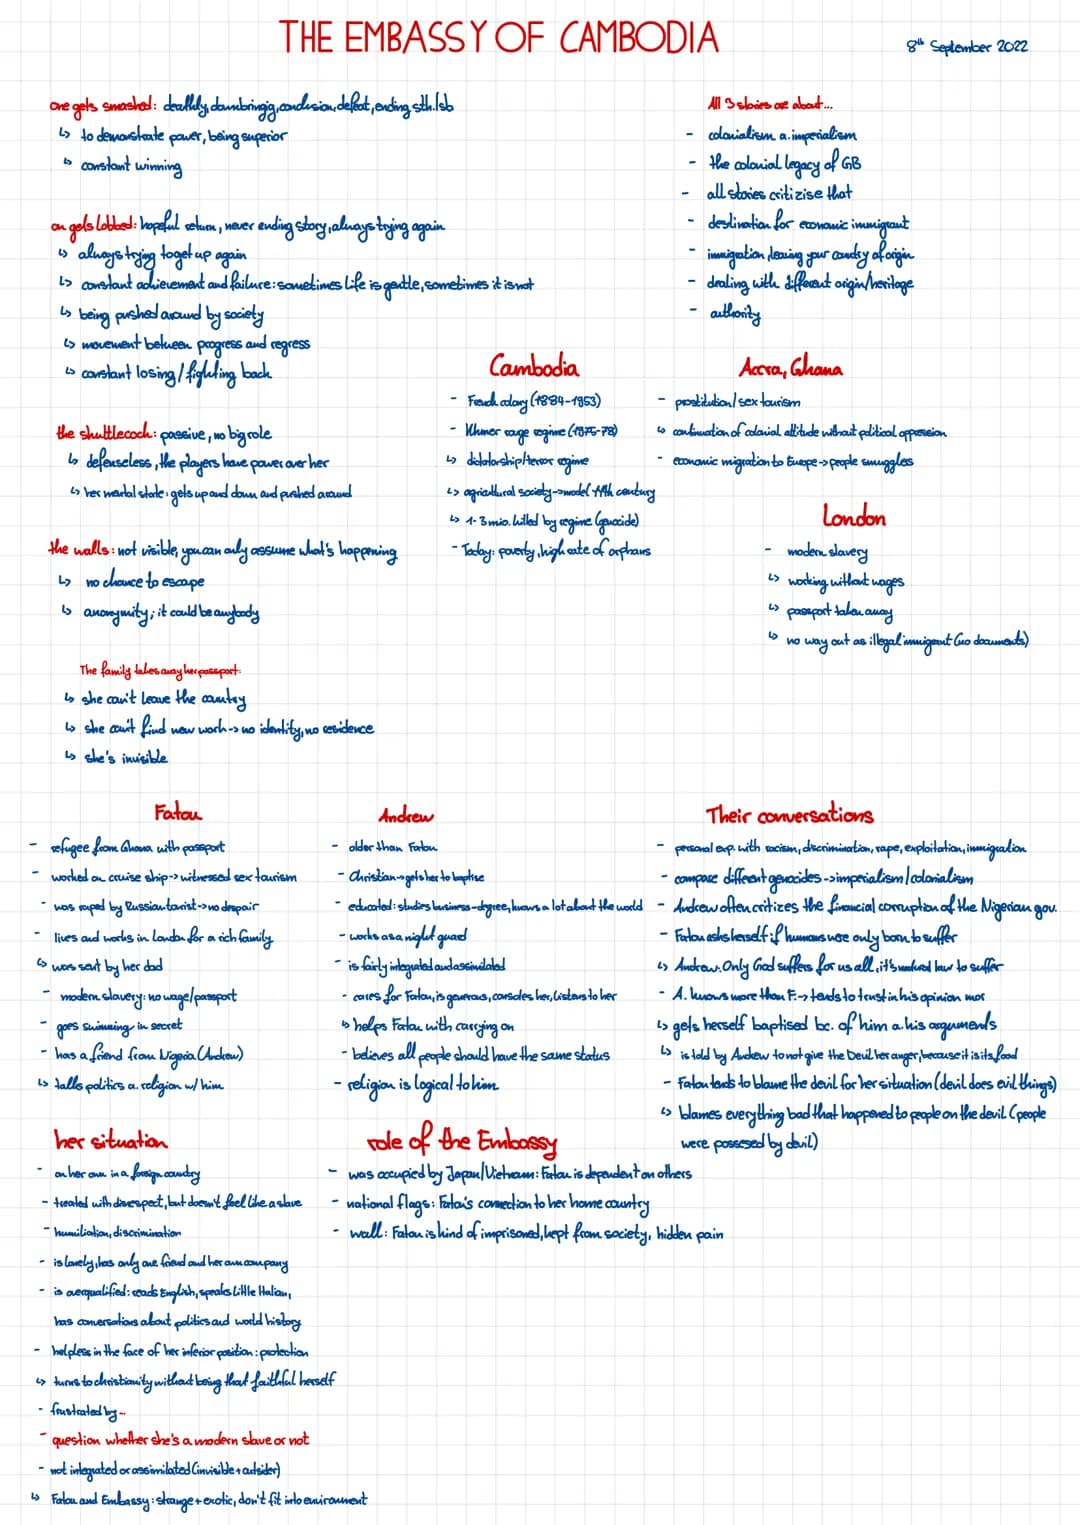 THE EMBASSY OF CAMBODIA
8th September 2022
one gets smashed: deathly, downbringig, conclusion, defeat, ending sth./sb
↳ to demonstrate power, being superior
↳ constant winning
on gets lobbed: hopeful return, never ending story, always trying again
↳ always trying to get up again
↳ constant achievement and failure: sometimes life is gentle, sometimes it is not
↳ being pushed around by society
↳ movement between progress and regress
↳ constant losing / fighting back
the shuttlecock: passive, no big role
↳ defenseless, the players have power over her
↳ her mental state: gets up and down and pushed around
the walls: not visible, you can only assume what's happening
↳ no chance to escape
↳ anonymity; it could be anybody
The family takes away her passport:
↳ she can't leave the country
↳ she can't find new work -> no identity, no residence
↳ she's invisible
All 3 stories are about...
- colonialism a. imperialism
- the colonial legacy of GB
- all stories critizise that
- destination for economic immigrant
- immigration, leaving your contry of origin
- dealing with different origin/heritage
- authority
Cambodia
- French colony (1884-1953)
- Khmer rouge regime (1975-78)
↳ dictatorship/terror regime
↳ agricultural society -> model 11th century
↳ 1-3 mio. killed by regime (genocide)
- Today: poverty, high rate of orphans
Accra, Ghana
- prostitution / sex tourism
↳ continuation of colonial attitude without political oppression
- economic migration to Europe -> people smugglers
London
- modern slavery
↳ working without wages
↳ passport taken away
↳ no way out as illegal immigrant (no documents)
Fatou
- refugee from Ghana with passport
- worked on cruise ship -> witnessed sex tourism
- was raped by Russian tourist -> no despair
- lives and works in London for a rich family
↳ was sent by her dad
- modern slavery: no wage/passport
- goes swimming in secret
- has a friend from Nigeria (Andrew)
↳ talks politics a. religion w/ him
Andrew
- older than Fatou
- Christian -> gets her to baptise
- educated: studies business-degree, knows a lot about the world
- works as a night guard
- is fairly integrated and assimilated
- cares for Fatou, is generous, consoles her, listens to her
↳ helps Fatou with carrying on
- believes all people should have the same status
- religion is logical to him
Their conversations
- personal exp. with racism, discrimination, rape, exploitation, immigration
- compare different genocides -> imperialism / colonialism
- Andrew often critizes the financial corruption of the Nigerian gov.
- Fatou asks herself if humans were only born to suffer
↳ Andrew: Only God suffers for us all, it's natural law to suffer
- A. knows more than F. -> tends to trust in his opinion mor
↳ gets herself baptised bc. of him a his arguments
↳ is told by Andrew to not give the Devil her anger, because it is its food
- Fatou tends to blame the devil for her situation (devil does evil things)
↳ blames everything bad that happened to people on the devil (people
were possesed by devil)
her situation
- on her own in a foreign country
- treated with disrespect, but doesn't feel like a slave
- humiliation, discrimination
- is lonely, has only one friend and her own company
- is overqualified: reads English, speaks little Italian,
has conversations about politics and world history
- helpless in the face of her inferior position: protection
↳ turns to christianity without being that faithful herself
- frustrated by...
- question whether she's a modern slave or not
- not integrated or assimilated (invisible + outsider)
↳ Fatou and Embassy: strange + exotic, don't fit into environment
role of the Embassy
- was occupied by Japan/Vietnam: Fatou is dependent on others
- national flags: Fatou's connection to her home country
- wall: Fatou is kind of imprisoned, kept from society, hidden pain